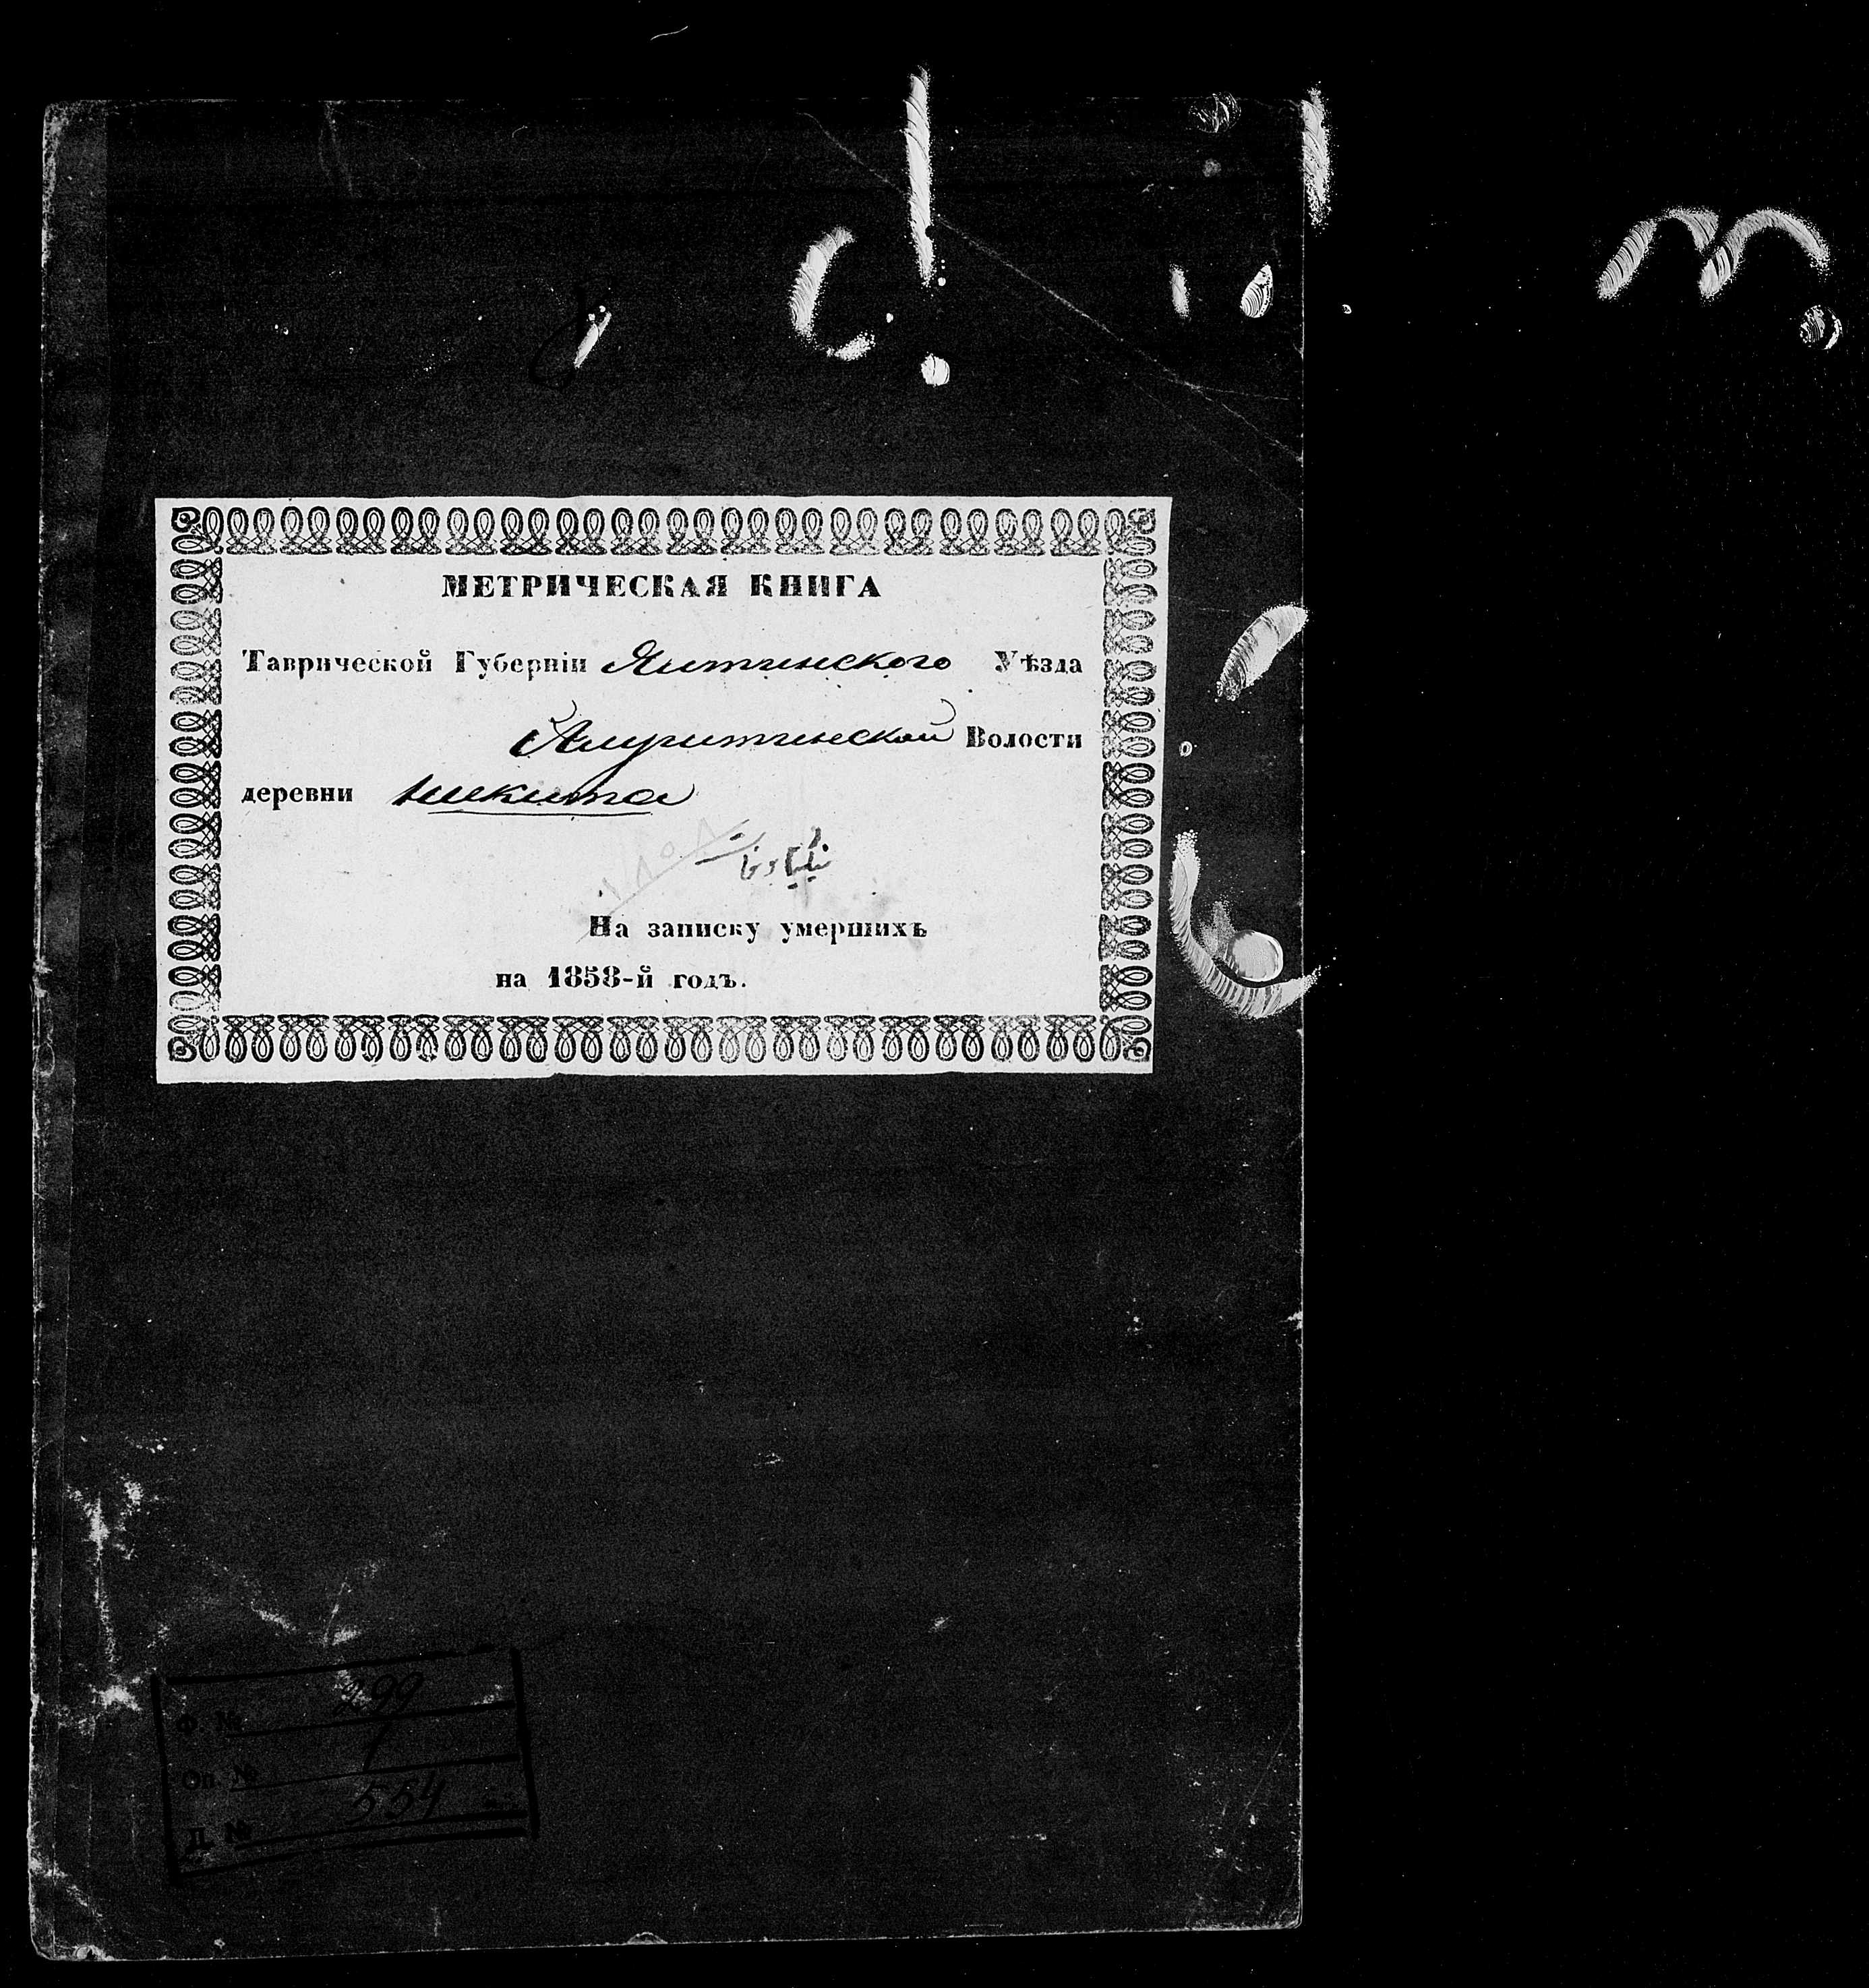 МЕТРИЧЕСКАЯ КНИГА
Таврической Губерніи Ялтинскаго Уѣзда
Алуштинской Волости
деревни Никита
На записку умершихъ
на 1858-й годъ.
Ф. № 299
Оп. № 1
Д. № 554